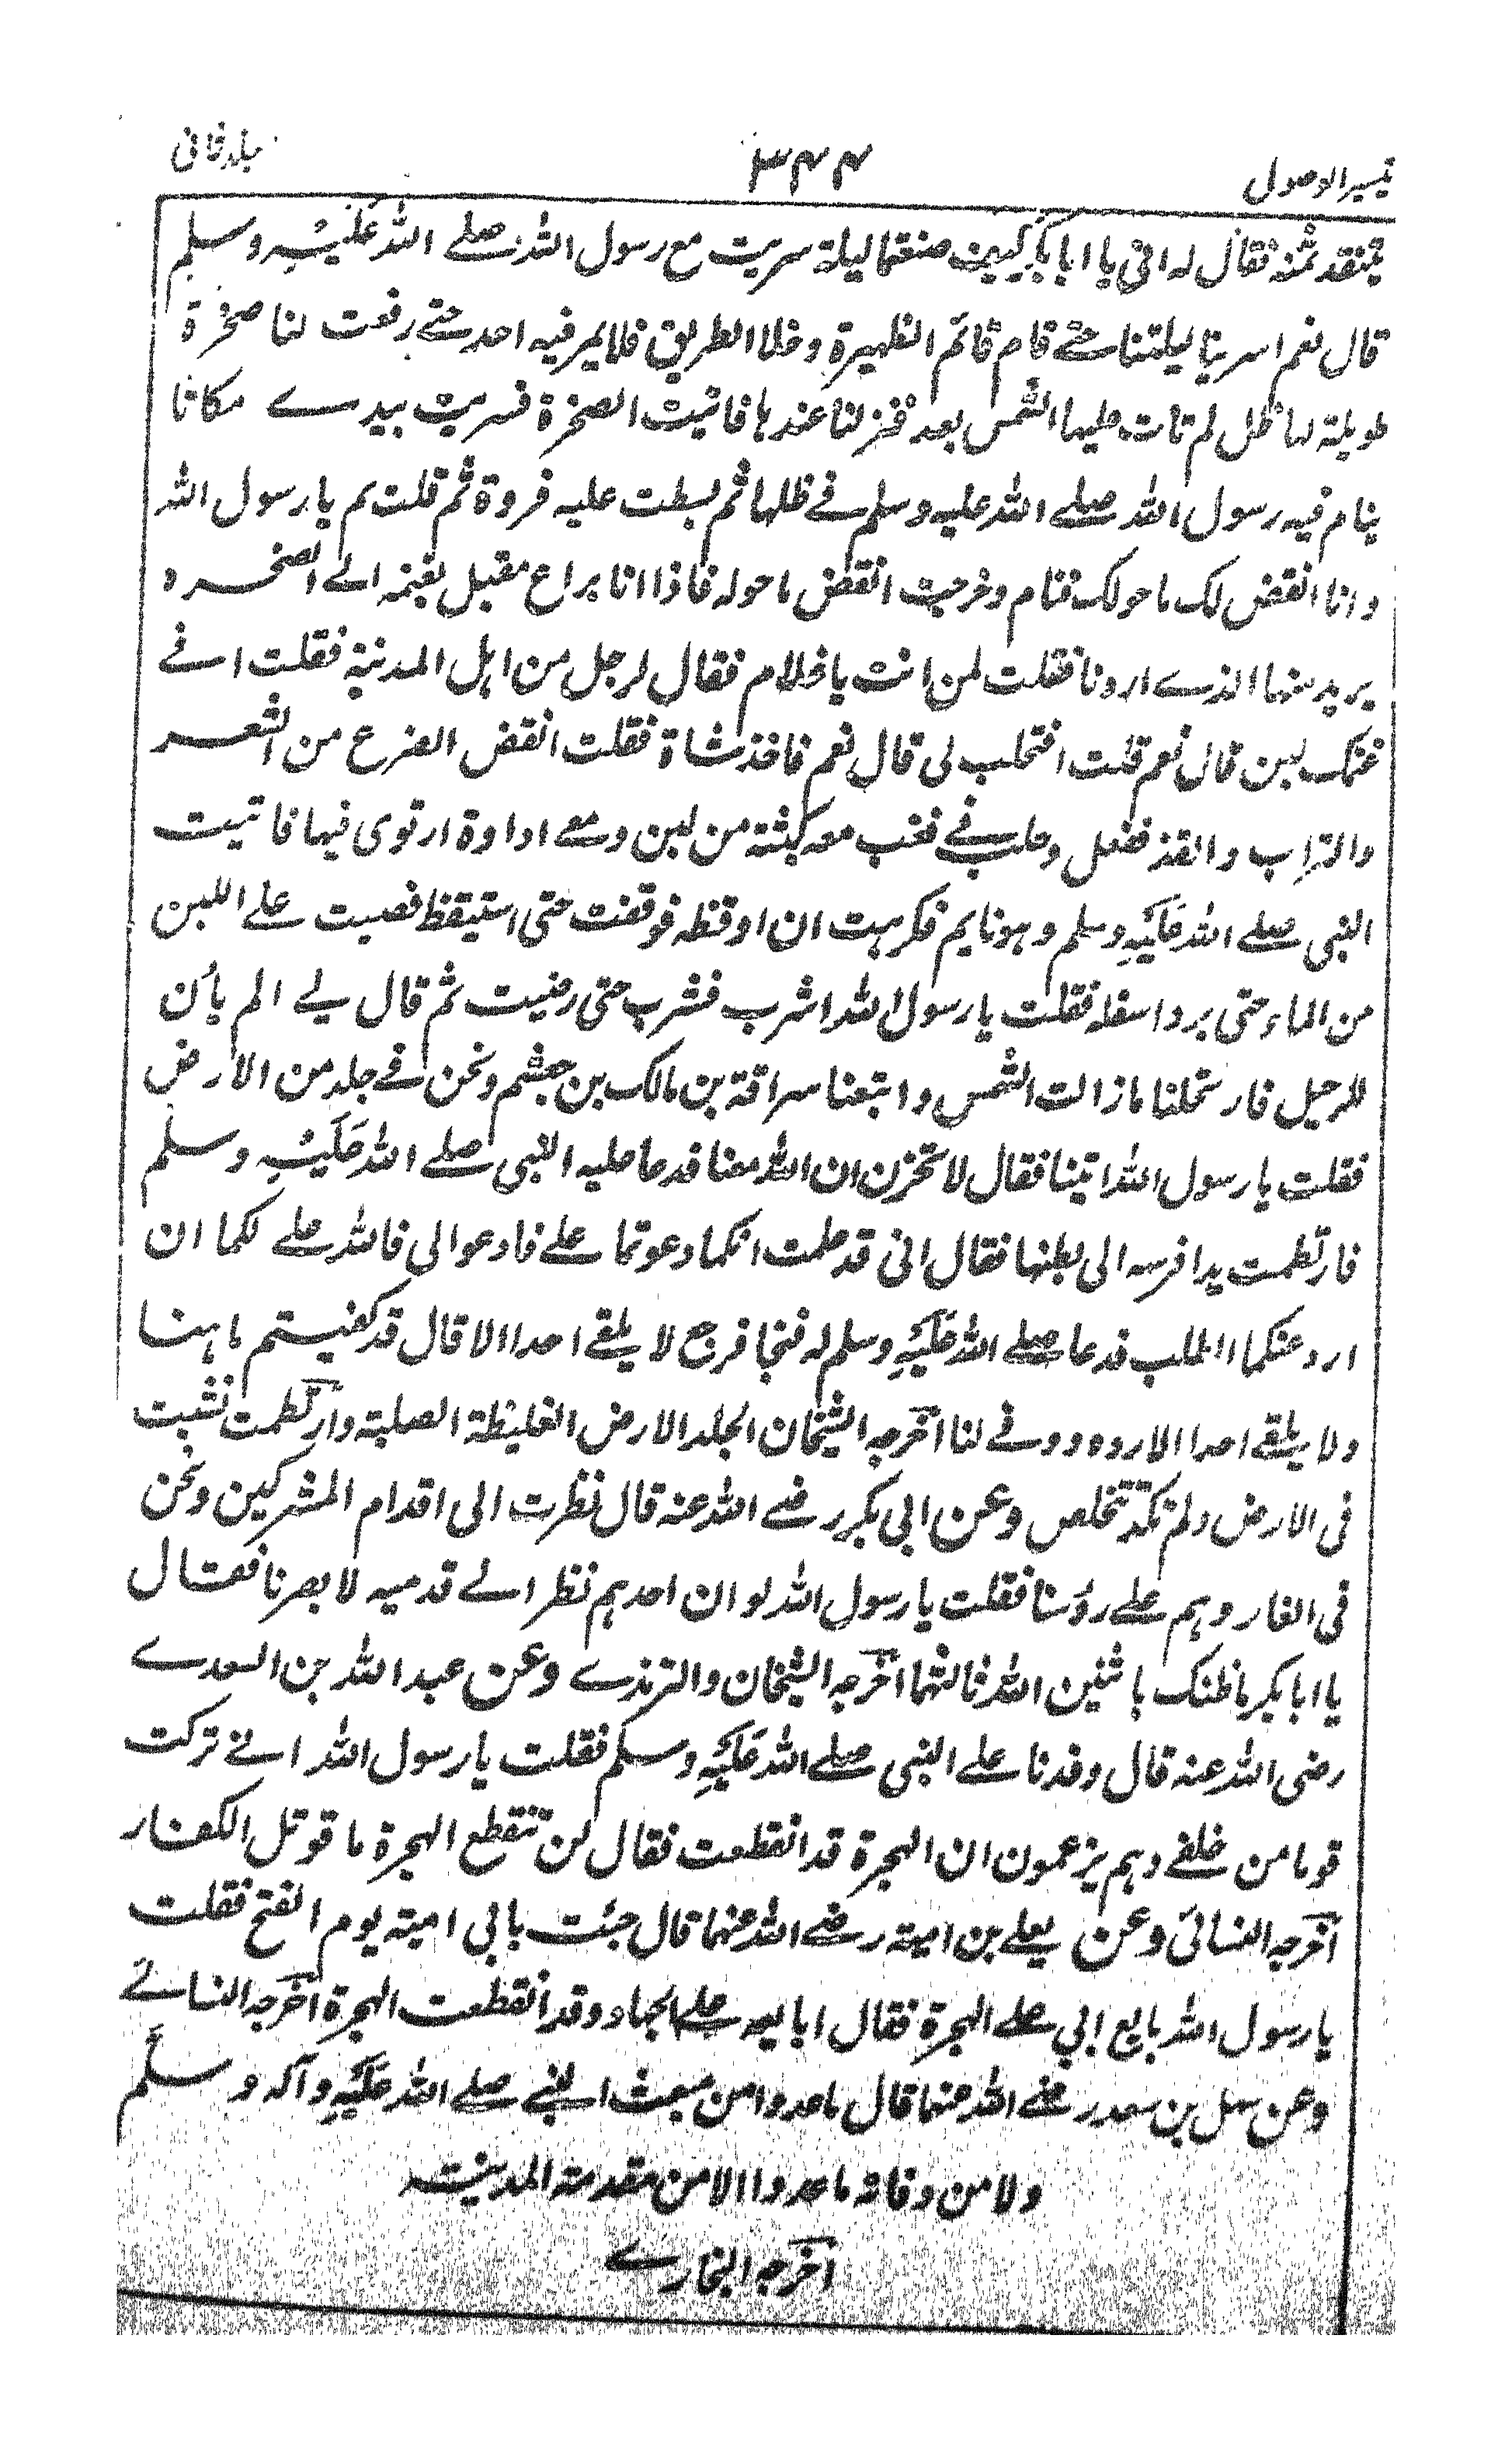 تیسیر الوصول ۳۴۴ جلد ثانی
ینتقد ثمنه فقال له ابی یا ابا بکر کیف صنعتما لیلة سریت مع رسول الله صلے الله علیه وسلم
قال نعم اسرینا لیلتنا حتے قام قائم الظهیرة وخلا الطریق فلا یمر فیه احد حتے رفعت لنا صخرة
طویلة لها ظل لم تات علیها الشمس بعد فنزلنا عندها فاتیت الصخرة فسویت بیدے مکانا
ینام فیه رسول الله صلے الله علیه وسلم فے ظلها ثم بسطت علیه فروة ثم قلت نم یا رسول الله
وانا انفض لک ما حولک فنام وخرجت انفض ما حوله فاذا انا براع مقبل بغنمه الے الصخرة
یرید منها الذے اردنا فقلت لمن انت یا غلام فقال لرجل من اهل المدینة فقلت افے
غنمک لبن قال نعم قلت افتحلب لی قال نعم فاخذ شاة فقلت انفض الضرع من الشعر
والتراب والقذ ففعل وحلب فے قعب معه کثبة من لبن ومعے اداوة ارتوی فیها فاتیت
النبی صلے الله علیه وسلم وهو نایم فکرهت ان اوقظه فوقفت حتی استیقظ فصببت علے اللبن
من الماء حتی برد اسفله فقلت یا رسول الله اشرب فشرب حتی رضیت ثم قال لے الم یأن
للرحیل فارتحلنا ما زالت الشمس واتبعنا سراقة بن مالک بن جعشم ونحن فے جلد من الارض
فقلت یا رسول الله اتینا فقال لا تحزن ان الله معنا فدعا علیه النبی صلے الله علیه وسلم
فارتطمت یدا فرسه الی بطنها فقال انی قد علمت انکما دعوتما علے فادعوا لی فالله علے لکما ان
ارد عنکما الطلب فدعا صلے الله علیه وسلم له فنجا فرجع لا یلقے احدا الا قال قد کفیتم ما هنا
ولا یلقے احدا الا رده ووفے لنا اخرجه الشیخان الجلد الارض الغلیظة الصلبة وارتطمت نشبت
فی الارض ولم تکد تتخلص وعن ابی بکر رضے الله عنه قال نظرت الی اقدام المشرکین ونحن
فی الغار وهم علے رؤسنا فقلت یا رسول الله لو ان احدهم نظر الے قدمیه لابصرنا فقال
یا ابا بکر ما ظنک باثنین الله ثالثهما اخرجه الشیخان والترمذے وعن عبد الله بن السعدے
رضی الله عنه قال وفدنا علے النبی صلے الله علیه وسلم فقلت یا رسول الله انے ترکت
قوما من خلفے وهم یزعمون ان الهجرة قد انقطعت فقال لن تنقطع الهجرة ما قوتل الکفار
اخرجه النسائی وعن یعلے بن امیة رضے الله عنهما قال جئت بابی امیة یوم الفتح فقلت
یا رسول الله بایع ابی علے الهجرة فقال ابایعه علے الجهاد وقد انقطعت الهجرة اخرجه النسائے
وعن سهل بن سعد رضے الله عنهما قال ما عدوا من مبعث النبے صلے الله علیه وآله وسلم
ولا من وفاته ما عدوا الا من مقدمه المدینة
اخرجه البخارے